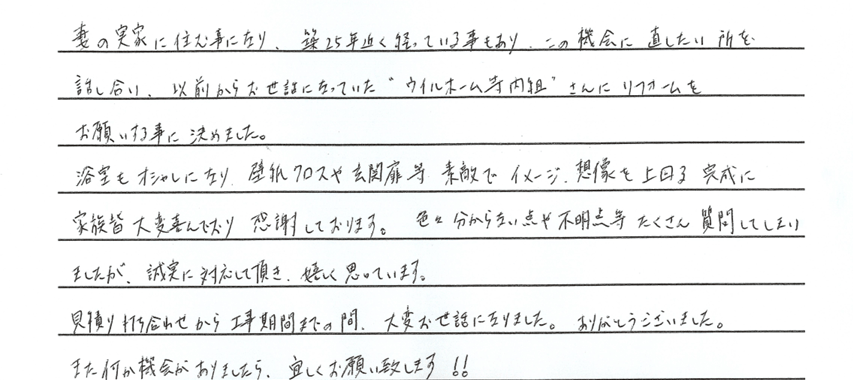 妻の実家に住む事になり、築25年近く経っている事もあり、この機会に直したい所を
話し合い、以前からお世話になっていた“ウイルホーム寺内組”さんにリフォームを
お願いする事に決めました。
浴室もオシャレになり、壁紙クロスや玄関扉等素敵でイメージ、想像を上回る完成に
家族皆大変喜んでおり感謝しております。色々分からない点や不明点等たくさん質問してしまい
ましたが、誠実に対応して頂き、嬉しく思っています。
見積り打ち合わせから工事期間までの間、大変お世話になりました。ありがとうございました。
また何か機会がありましたら、宜しくお願い致します!!